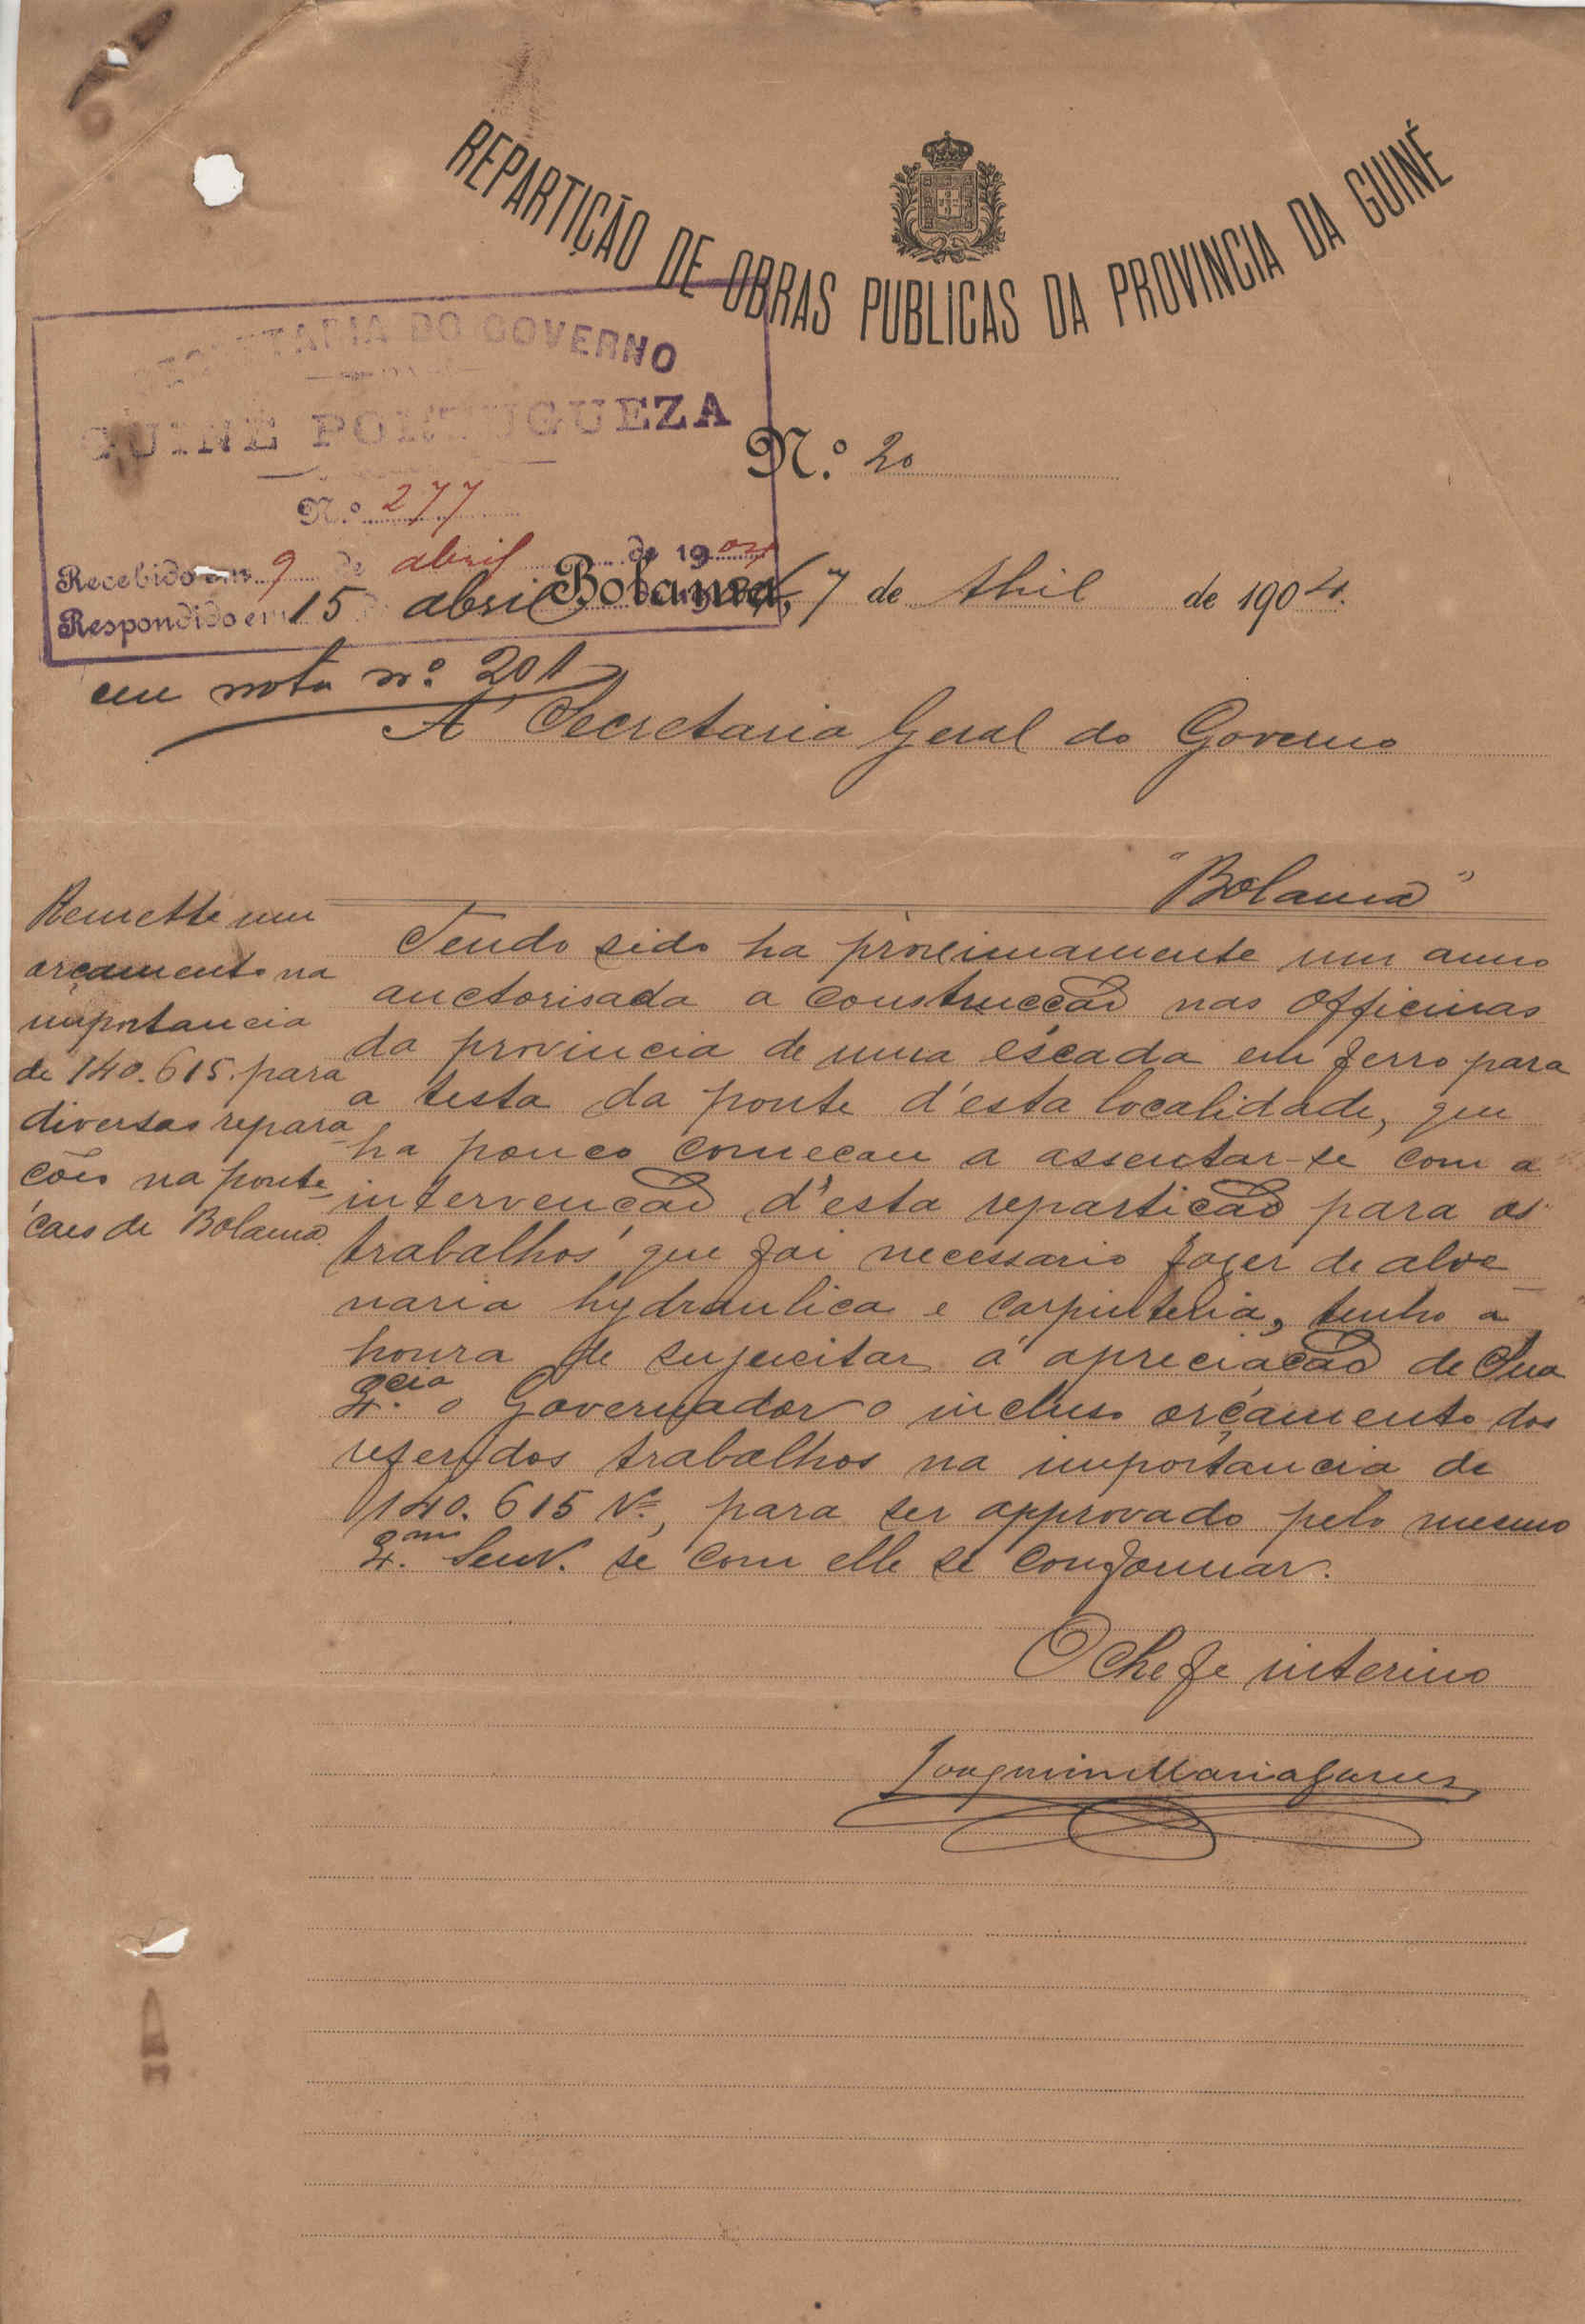 REPARTIÇÃO DE OBRAS PUBLICAS DA PROVINCIA DA GUINÉ
SECRETARIA DO GOVERNO
DA
GUINÉ PORTUGUEZA
N.º 277
Recebido em 9 de abril de 1904
Respondido em 15 de abril
em nota nº 201
N.º 20
Bolama, 7 de Abril de 1904.
A' Secretaria Geral do Governo
"Bolama"
Remette um
orçamento na
importancia
de 140.615. para
diversas repara
ções na ponte
caes de Bolama.
Tendo sido ha proximamente um anno
auctorisada a construcção nas officinas
da provincia de uma escada em ferro para
a testa da ponte d'esta localidade, que
ha pouco começou a assentar-se com a
intervenção d'esta repartição para os
trabalhos que foi necessario fazer de alve
naria hydraulica e carpinteria, tenho a
honra de sujeitar á apreciação de Sua
Ex.cia o Governador o incluso orçamento dos
referidos trabalhos na importancia de
140.615 rs, para ser approvado pelo mesmo
Ex.mo Senr. se com elle se conformar.
O Chefe interino
Joaquim Maria Garcez